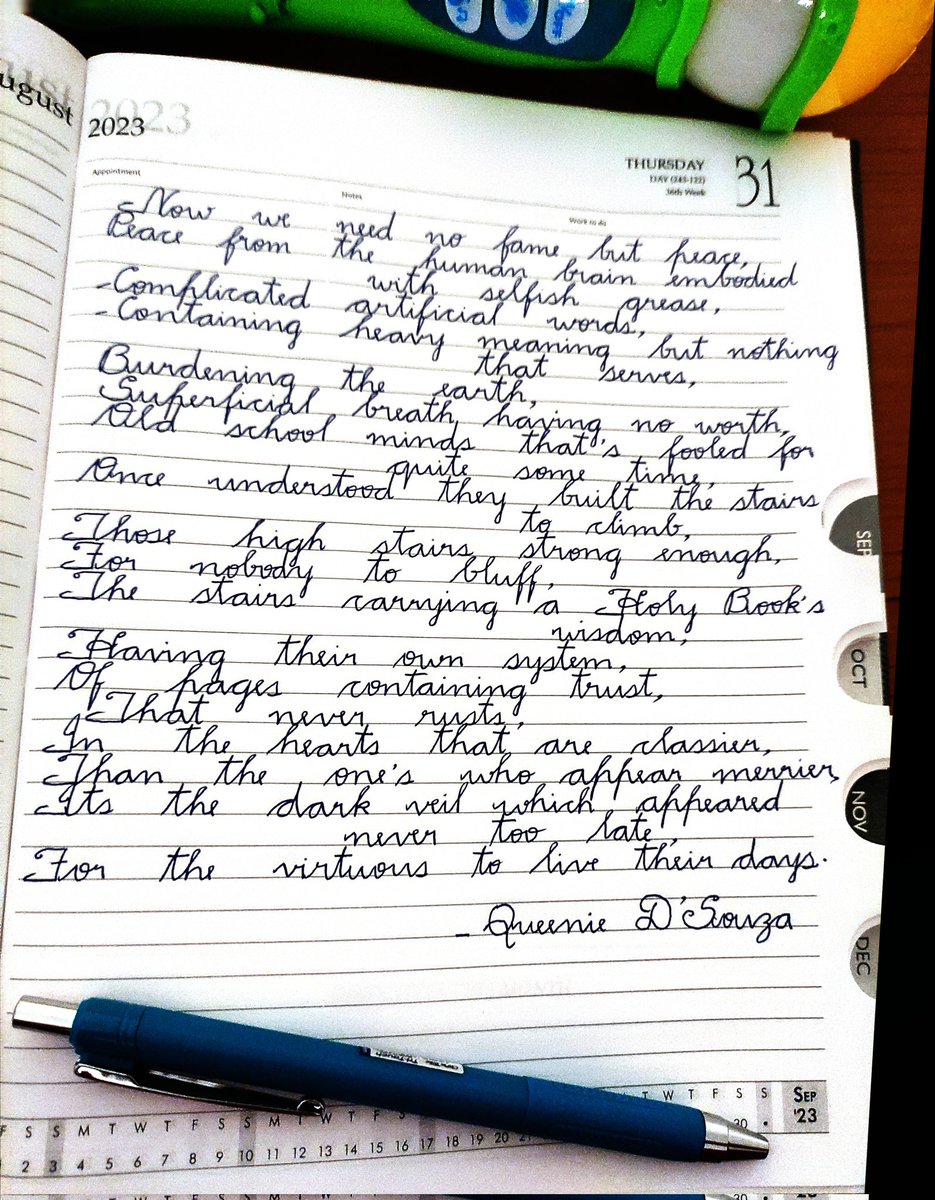 ugust
2023
THURSDAY
31
DAY (243-122)
36th Week
Appointment
Notes
Work to do
Now we need no fame but peace,
Peace from the human brain embodied
with selfish grease,
Complicated artificial words,
Containing heavy meaning but nothing
that serves,
Burdening the earth,
Superficial breath having no worth,
Old school minds that's fooled for
quite some time,
Once understood they built the stairs
to climb,
Those high stairs strong enough,
For nobody to bluff,
The stairs carrying a Holy Book's
wisdom,
Having their own system,
Of pages containing trust,
That never rusts,
In the hearts that are classier,
Than the one's who appear merrier,
Its the dark veil which appeared
never too late,
For the virtuous to live their days.
- Queenie D'Souza
SEP
OCT
NOV
DEC
T W T F S S
SEP
'23
30
F S S M T W T F S S M T W
2 3 4 5 6 7 8 9 10 11 12 13 14 15 16 17 18 19 20 21